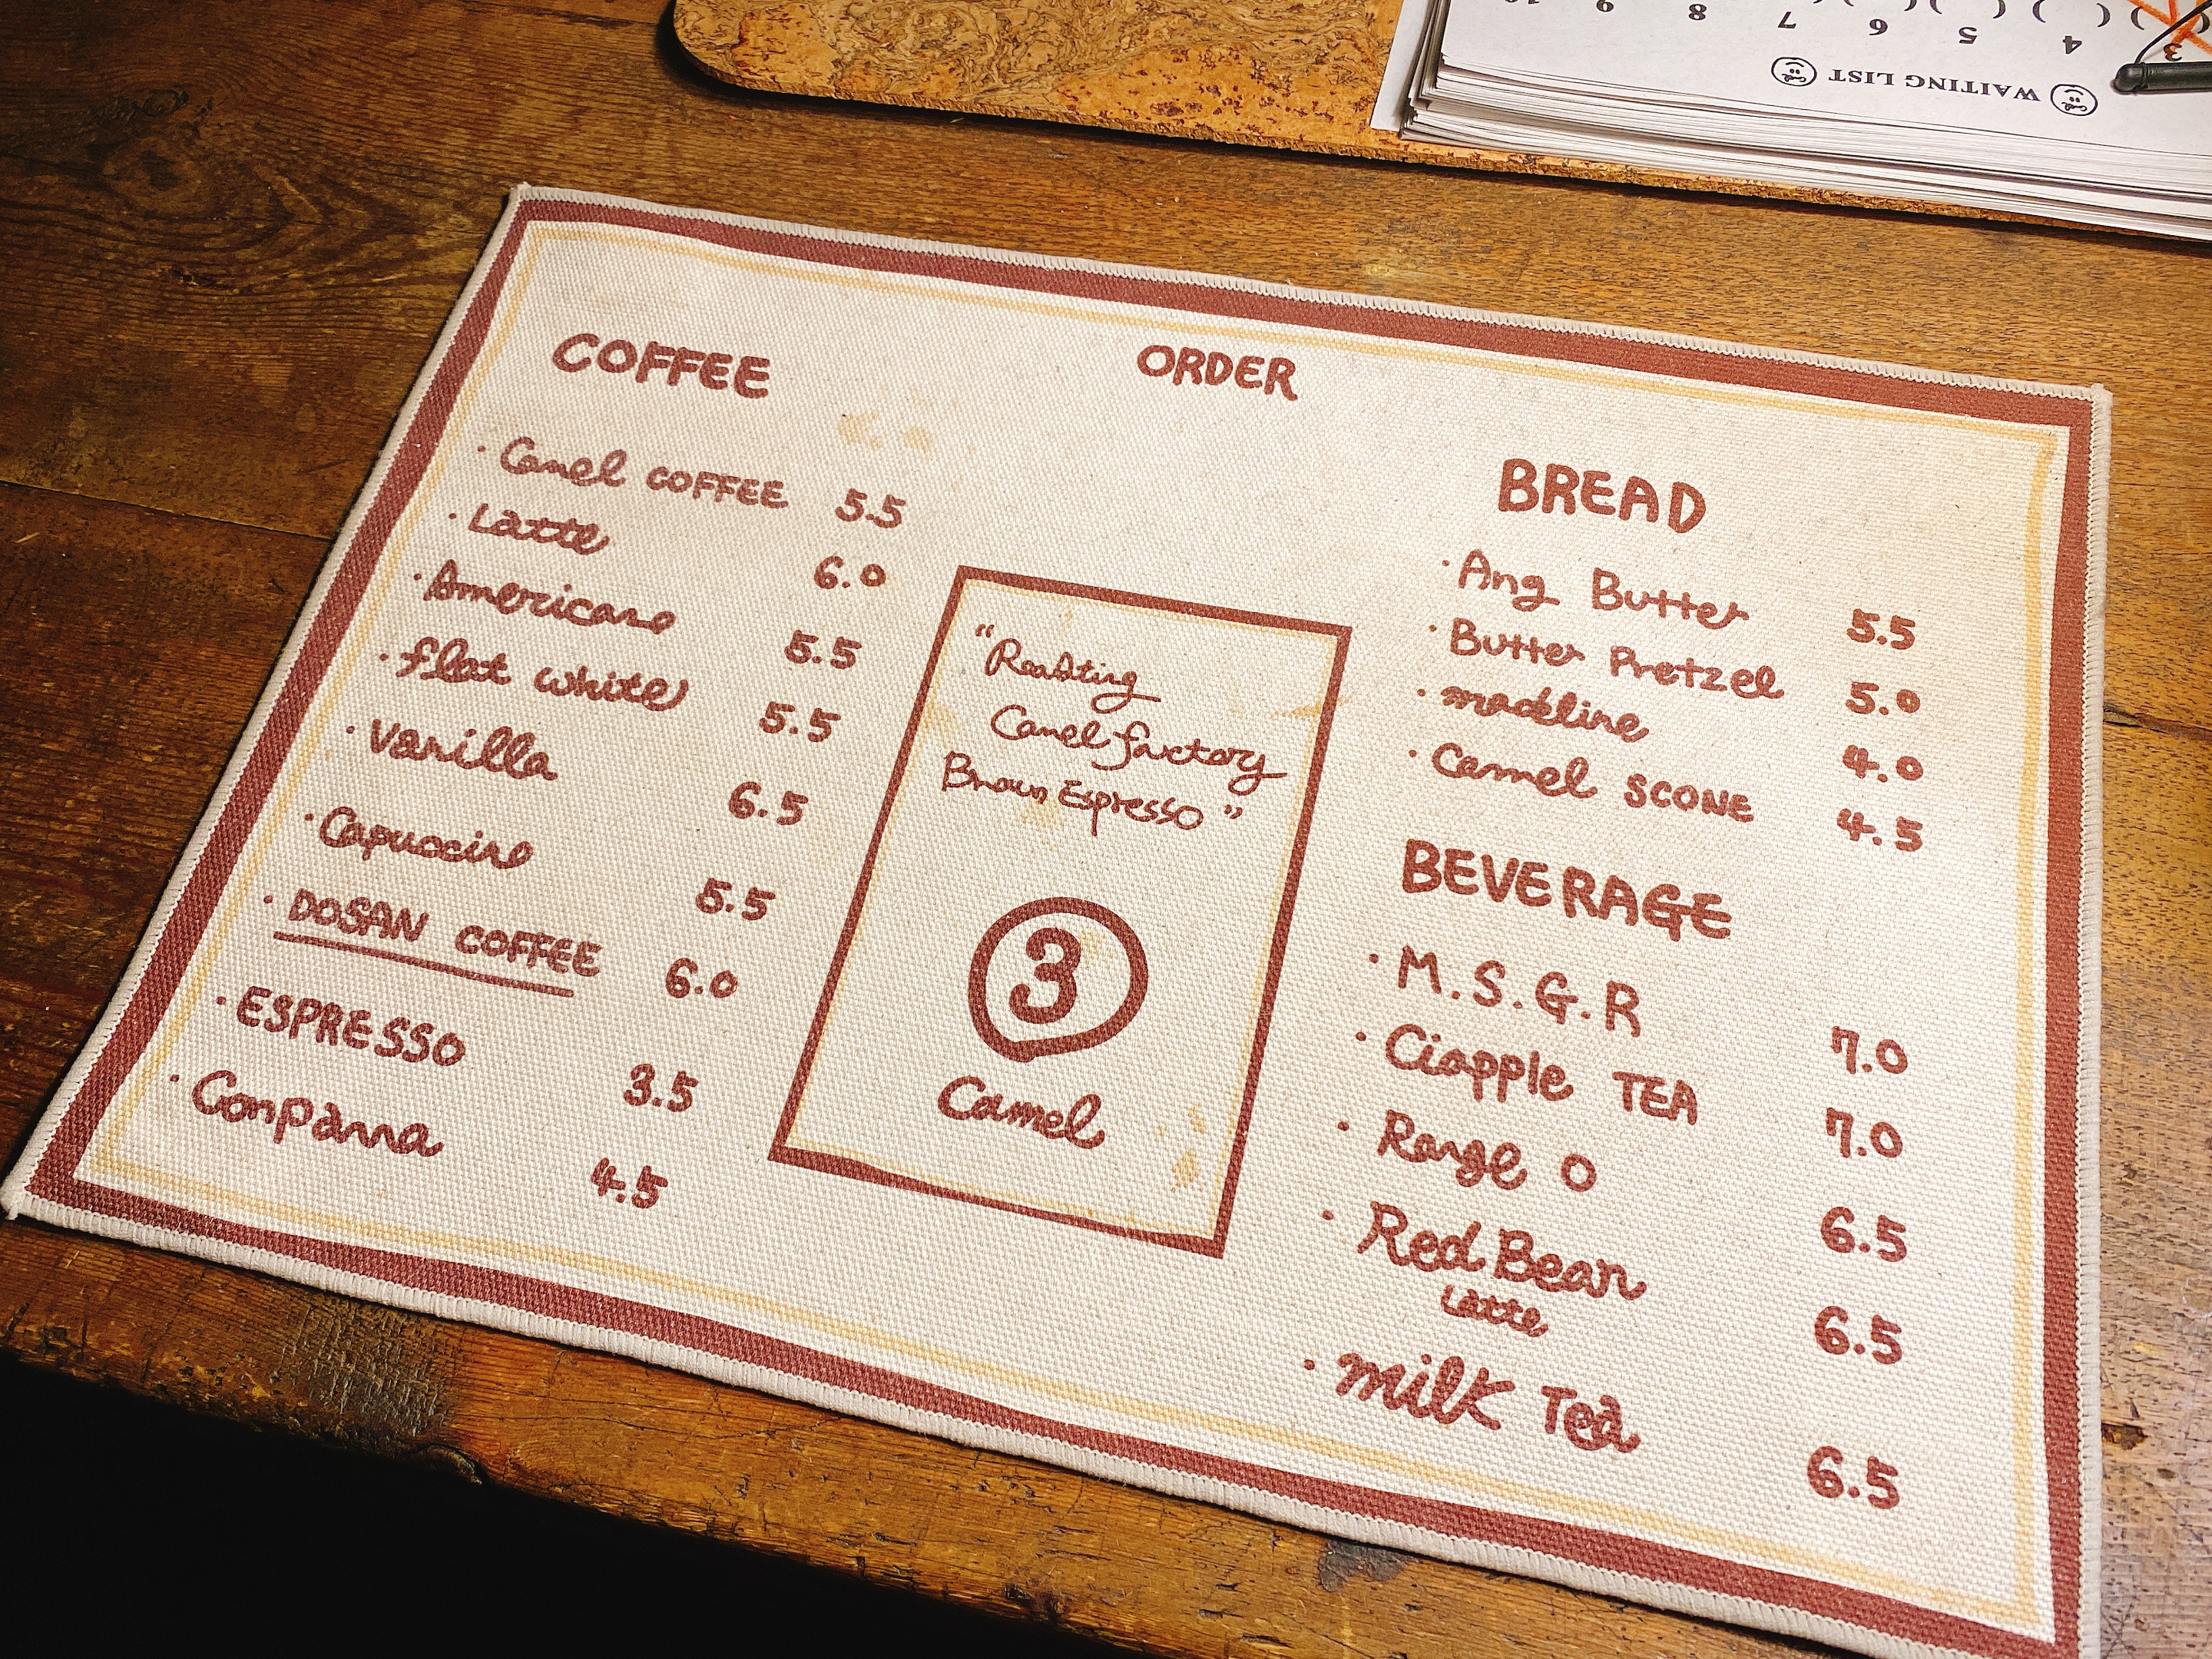 WAITING LIST
3 4 5 6 7 8 9 10
ORDER
COFFEE
· Camel COFFEE 5.5
· Latte 6.0
· Americano 5.5
· flat white 5.5
· Vanilla 6.5
· Capuccino 5.5
· DOSAN COFFEE 6.0
· ESPRESSO 3.5
· Conpanna 4.5
"Roasting
Camel factory
Brown Espresso"
3
Camel
BREAD
· Ang Butter 5.5
· Butter Pretzel 5.0
· madeline 4.0
· Camel SCONE 4.5
BEVERAGE
· M.S.G.R 7.0
· Ciapple TEA 7.0
· Range O 6.5
· Red Bean 6.5
Latte
· milk Tea 6.5